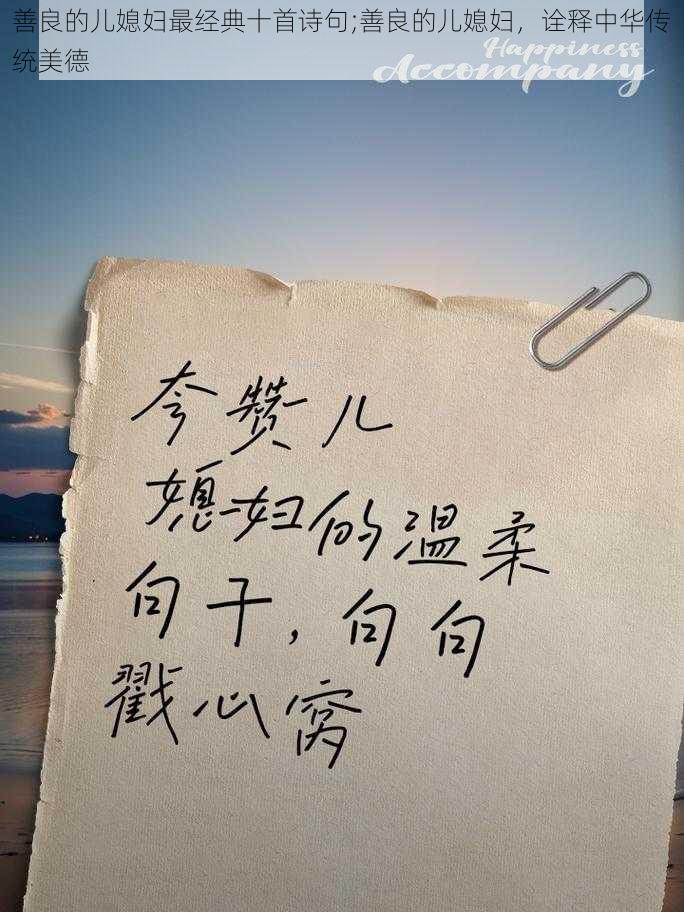 善良的儿媳妇最经典十首诗句;善良的儿媳妇，诠释中华传
统美德
Happiness
Accompany
夸赞儿
媳妇的温柔
句子，句句
戳心窝